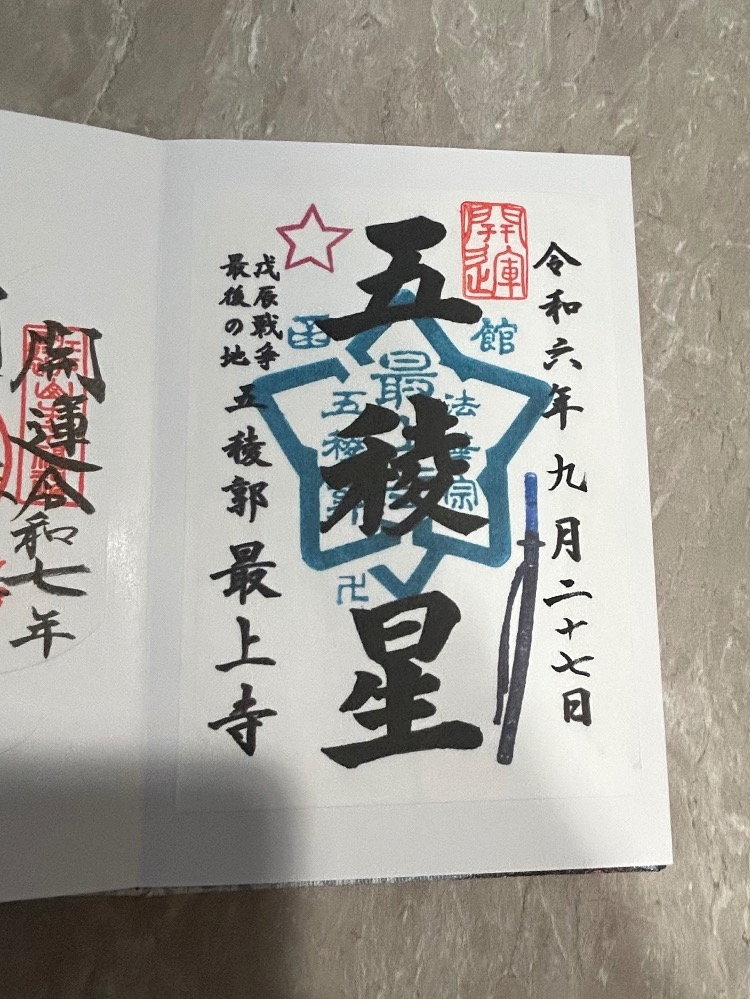 開運
令和六年九月二十七日
五稜星
函館
法華宗
最上寺
五稜郭
卍
戊辰戦争
最後の地
五稜郭
最上寺
開運
令和七年